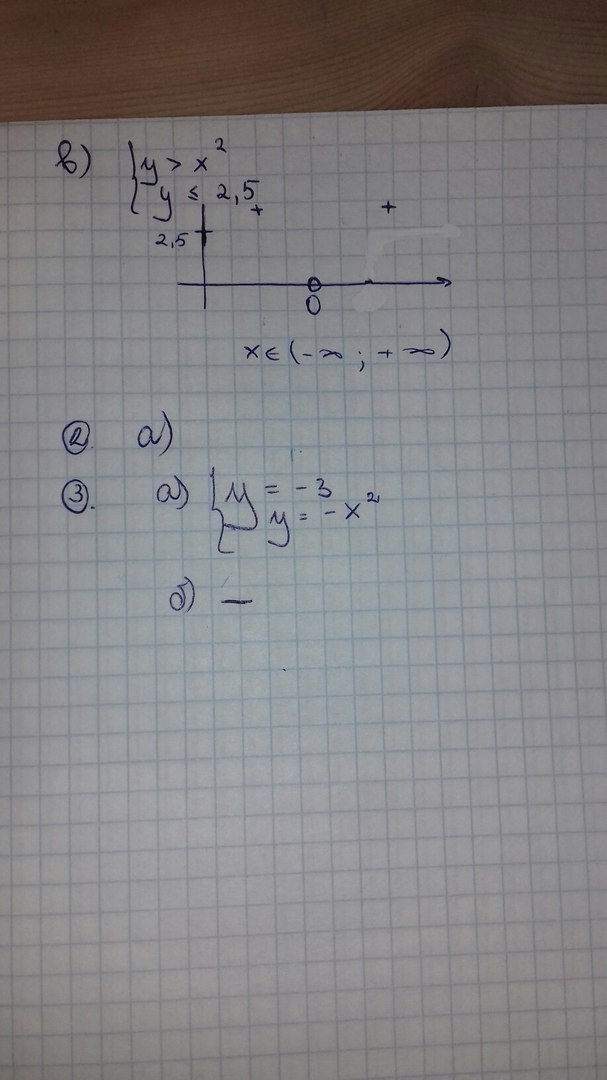 в) { y > x²
y ≤ 2,5
+ +
2,5
0
x ∈ (-∞ ; +∞)
②. а)
③. а) { y = -3
y = -x²
б) —